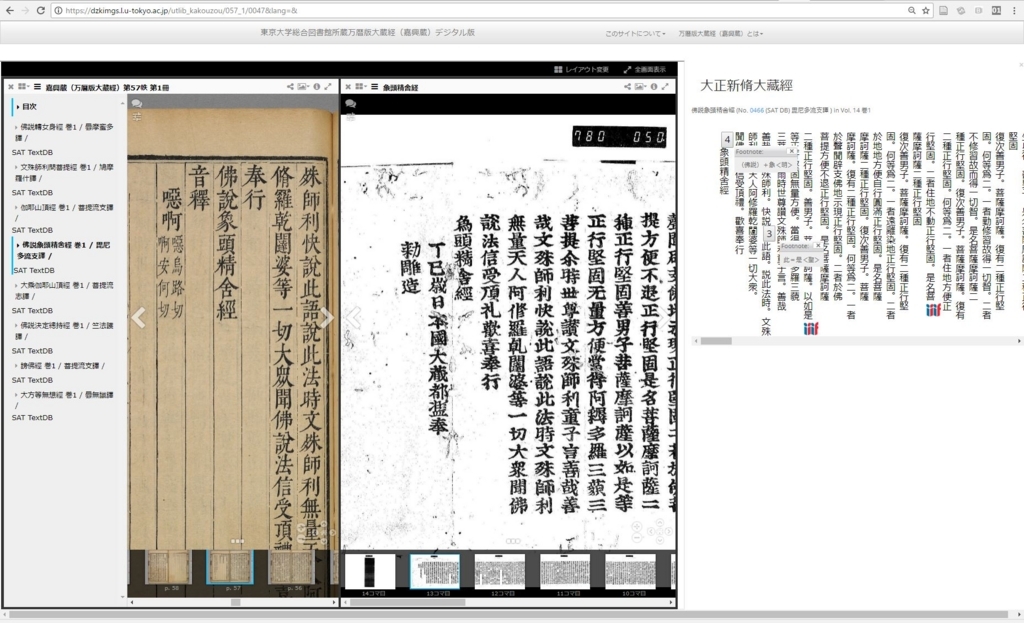 https://dzkimgs.l.u-tokyo.ac.jp/utlib_kakouzou/057_1/0047&lang=&
東京大学総合図書館所蔵万暦版大蔵経（嘉興蔵）デジタル版
このサイトについて
万暦版大蔵経（嘉興蔵）とは
レイアウト変更
全画面表示
嘉興蔵（万暦版大蔵経）第57帙 第1冊
目次
佛說轉女身經 卷1 / 曇摩蜜多譯 /
SAT TextDB
文殊師利問菩提經 卷1 / 鳩摩羅什譯 /
SAT TextDB
伽耶山頂經 卷1 / 菩提流支譯 /
SAT TextDB
佛說象頭精舍經 卷1 / 毘尼多流支譯 /
SAT TextDB
大乘伽耶山頂經 卷1 / 菩提流志譯 /
SAT TextDB
佛說決定總持經 卷1 / 竺法護譯 /
SAT TextDB
謗佛經 卷1 / 菩提流支譯 /
SAT TextDB
大方等無想經 卷1 / 曇無讖譯 /
SAT TextDB
殊師利快說此語說此法時文殊師利無量天
脩羅乾闥婆等一切大眾聞佛說法信受頂禮
奉行
佛說象頭精舍經
音釋
噁啊
p. 58
p. 57
p. 56
象頭精舍經
780 050
提方便不退正行堅固是名菩薩摩訶薩二
種正行堅固善男子菩薩摩訶薩以如是等
正行堅固无量方便當得阿耨多羅三藐三
菩提尒時世尊讚文殊師利童子言善哉善
哉文殊師利快說此語說此法時文殊師利
無量天人阿修羅乾闥婆等一切大衆聞佛
說法信受頂礼歡喜奉行
爲頭精舍經
丁巳歲日本國大藏都監奉
勅雕造
14コマ目
13コマ目
12コマ目
11コマ目
10コマ目
大正新脩大藏經
佛說象頭精舍經 (No. 0466 (SAT DB) 毘尼多流支譯 ) in Vol. 14 卷1
堅固
復次善男子。菩薩摩訶薩。復有二種正行堅
固。何等爲二。一者勤修習故得一切智。二者
不修習故而得一切智。是名菩薩摩訶薩二
種正行堅固。復次善男子。菩薩摩訶薩。復有
二種正行堅固。何等爲二。一者住地方便正
行堅固。二者住地不動正行堅固。是名菩
薩摩訶薩二種正行堅固
復次善男子。菩薩摩訶薩。復有二種正行堅
固。何等爲二。一者遠離染地正行堅固。二者
於地地方便自行圓滿正行堅固。是名菩薩
摩訶薩二種正行堅固。復次善男子。菩薩
摩訶薩。復有二種正行堅固。何等爲二。一者
於聲聞辟支佛地示現正行堅固。二者於佛
菩提方便不退正行堅固。是名菩薩摩訶薩
二種正行堅固。善男子。菩薩摩訶薩。以如是
等正行堅固無量方便。當得阿耨多羅三藐
三菩提爾時世尊讚文殊師利童子言。善哉
善哉。文殊師利。快說此語。說此法時。文殊
師利無量天人阿修羅乾闥婆等一切大衆。
聞佛說法信受頂禮。歡喜奉行
4
象頭精舍經
Footnote:
〔佛說〕＋象＜明＞
3
Footnote:
iiif
iiif